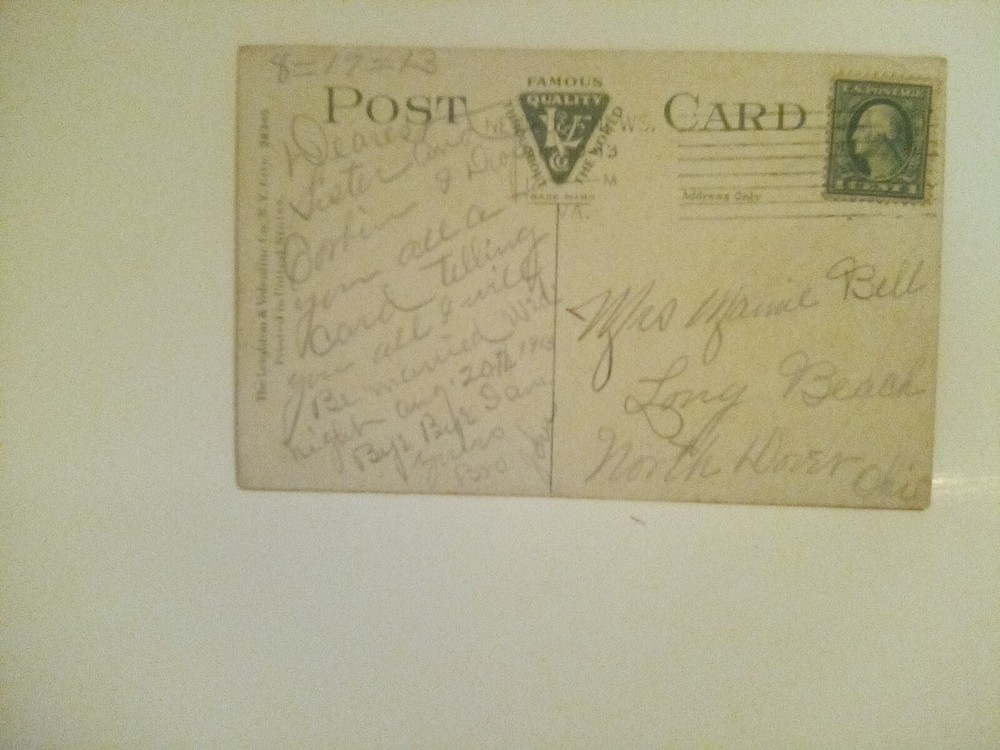 8=19=13
POST CARD
FAMOUS
QUALITY
L&V
Co
THROUGHOUT THE WORLD
TRADE MARK
NE WS.
M
VA.
U.S. POSTAGE
1 CENT 1
Address Only
The Leighton & Valentine Co., N.Y. City.
Printed in United States.
Dearest
Sister and
I Drop
you all a
Card telling
you all I will
Be married Wed
night aug 20th 1913
Bye Bye I am
yours
Bro
Mrs Mamie Bell
Long Beach
North Dover
Ohio